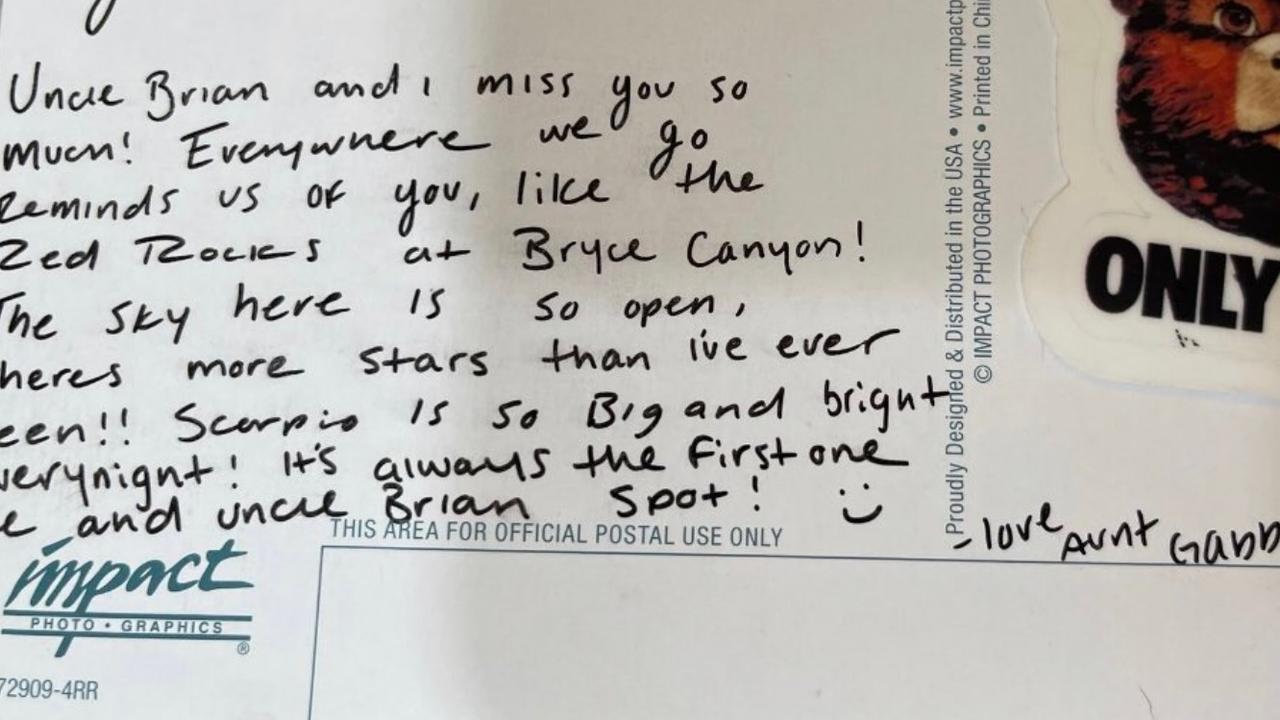 Uncle Brian and i miss you so
much! Everywhere we go
Reminds us of you, like the
Red Rocks at Bryce Canyon!
The sky here is so open,
heres more stars than i've ever
een!! Scorpio is so Big and bright
verynight! It's always the first one
e and uncle Brian spot! :)
-love Aunt Gabb
THIS AREA FOR OFFICIAL POSTAL USE ONLY
impact
PHOTO • GRAPHICS
®
72909-4RR
Proudly Designed & Distributed in the USA • www.impactp
© IMPACT PHOTOGRAPHICS • Printed in Chi
ONLY